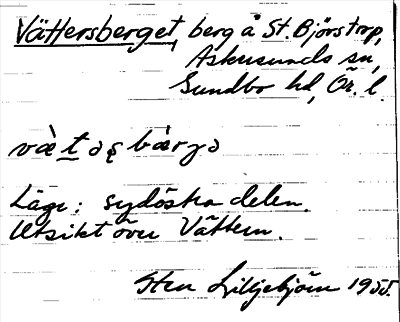 Vättersberget, berg å St. Björstorp,
Askersunds sn,
Sundbo hd, Ör. l.
Läge: sydöstra delen.
Utsikt över Vättern.
Sten Liljebjörn 1955.